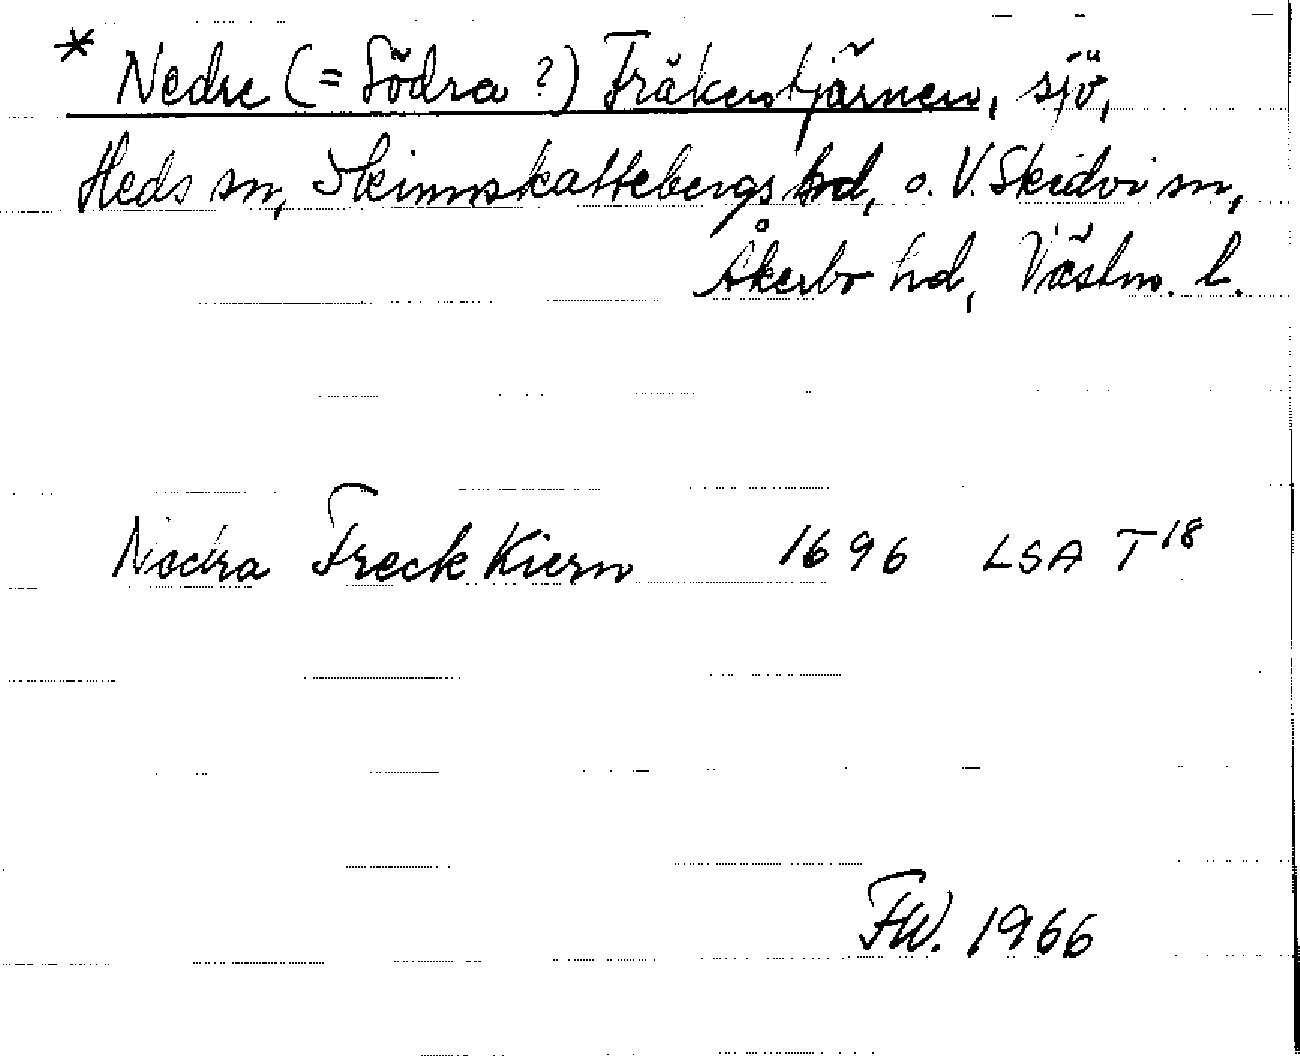 * Nedre (= Södra ?) Fräkentjärnen, sjö,
Heds sn, Skinnskattebergs hd, o. V. Skedvi sn,
Åkerbo hd, Västm. l.
Nedra Freck Kiern 1696 LSA T18
FW. 1966